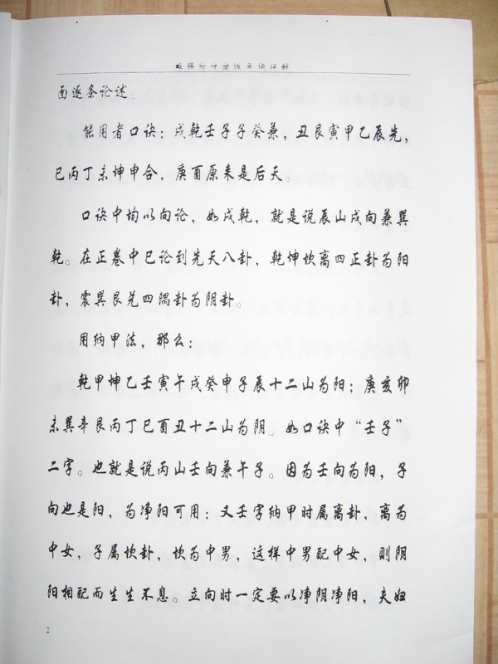 面逐条论述
能用者口诀：戌乾壬子子癸兼，丑艮寅甲乙辰先，
巳丙丁未坤申合，庚酉原来是后天
口诀中均以向论，如戌乾，就是说辰山戌向兼巽
乾。在正卷中已论到先天八卦，乾坤坎离四正卦为阳
卦，震巽艮兑四隅卦为阴卦。
用纳甲法，那么：
乾甲坤乙壬寅午戌癸申子辰十二山为阳；庚亥卯
未巽辛艮丙丁巳酉丑十二山为阴」如口诀中“壬子”
二字。也就是说丙山壬向兼午子。因为壬向为阳，子
向也是阳，为净阳可用；又壬字纳甲时属离卦，离为
中女，子属坎卦，坎为中男，这样中男配中女，则阴
阳相配而生生不息。立向时一定要以净阴净阳，夫妇
2